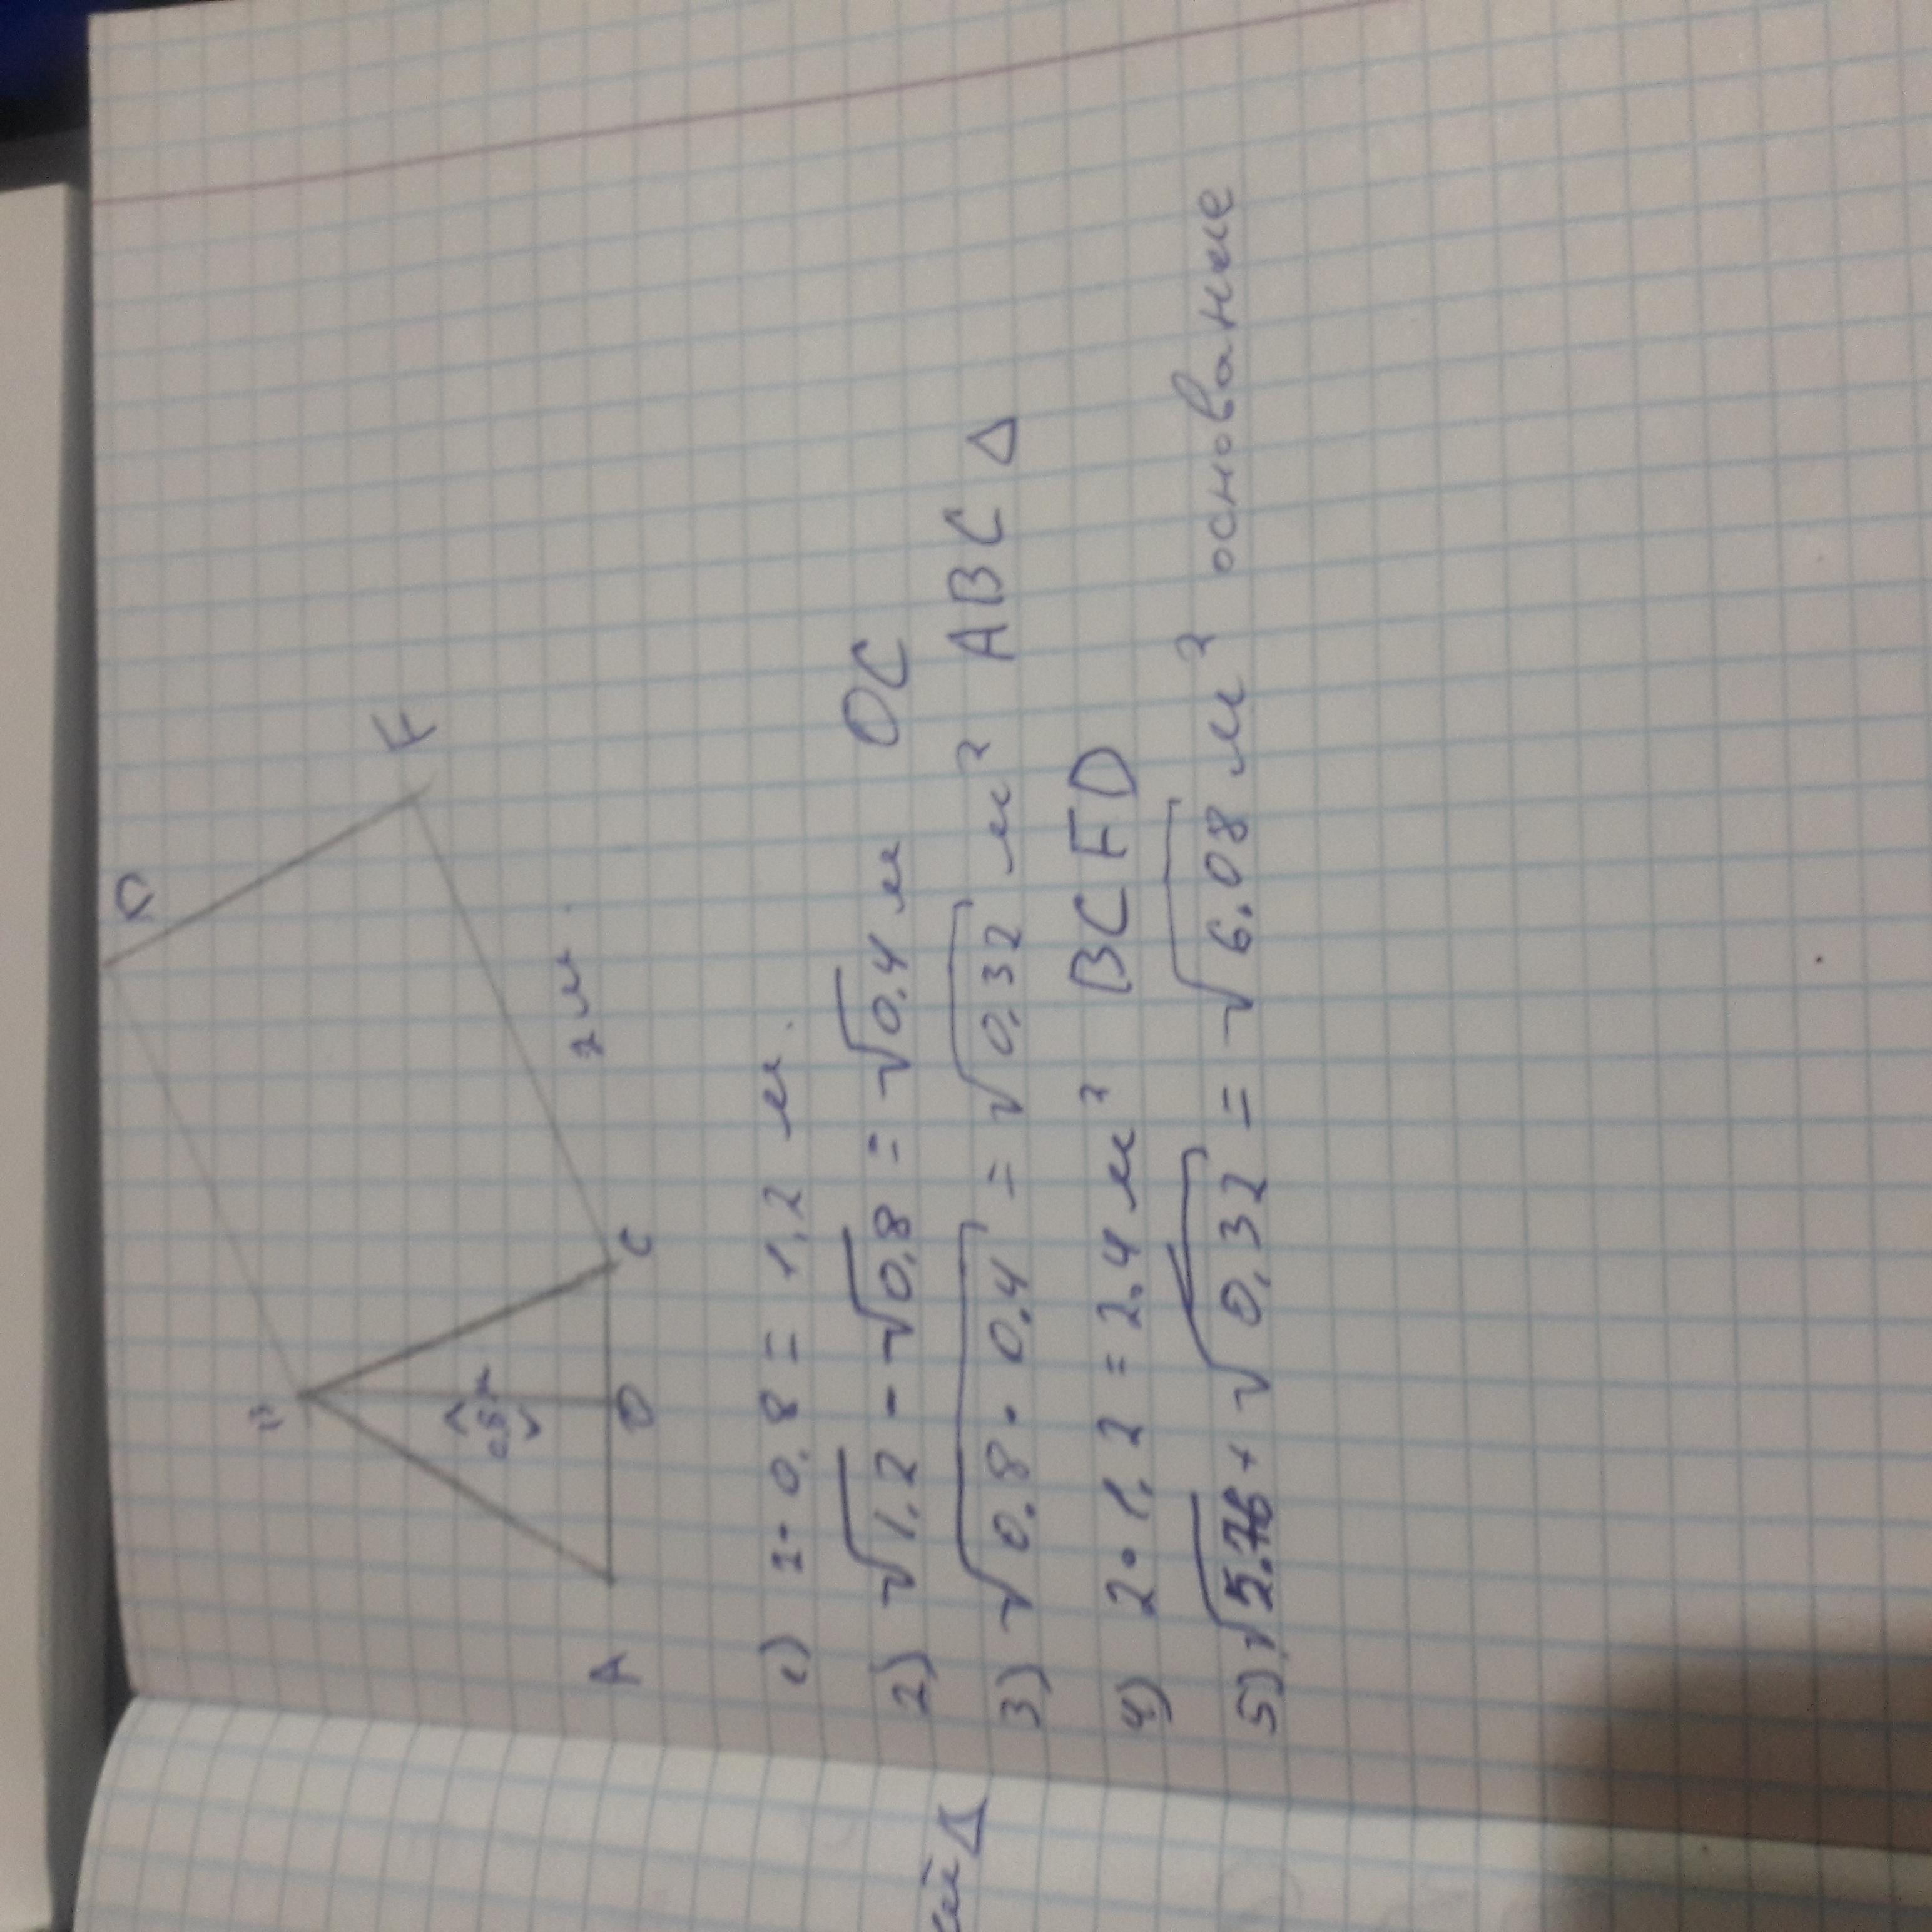 D
F
2 м.
0,8 м
A
O
C
1) 2 - 0.8 = 1,2 м.
2) √1,2 - √0,8 = √0,4 м OC
3) √0.8 · 0.4 = √0,32 м² ABC Δ
4) 2 · 1,2 = 2.4 м² BCFD
5) √5.76 + √0,32 = √6.08 м² основание
Δ